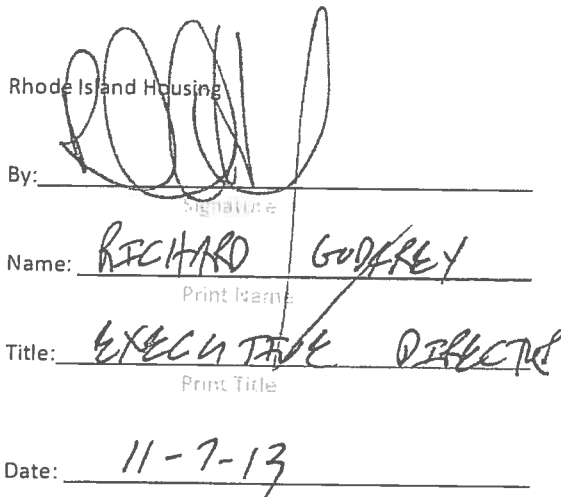 Rhode Island Housing
By:
Signature
Name: RICHARD GODFREY
Print Name
Title: EXECUTIVE DIRECTOR
Print Title
Date: 11-7-13